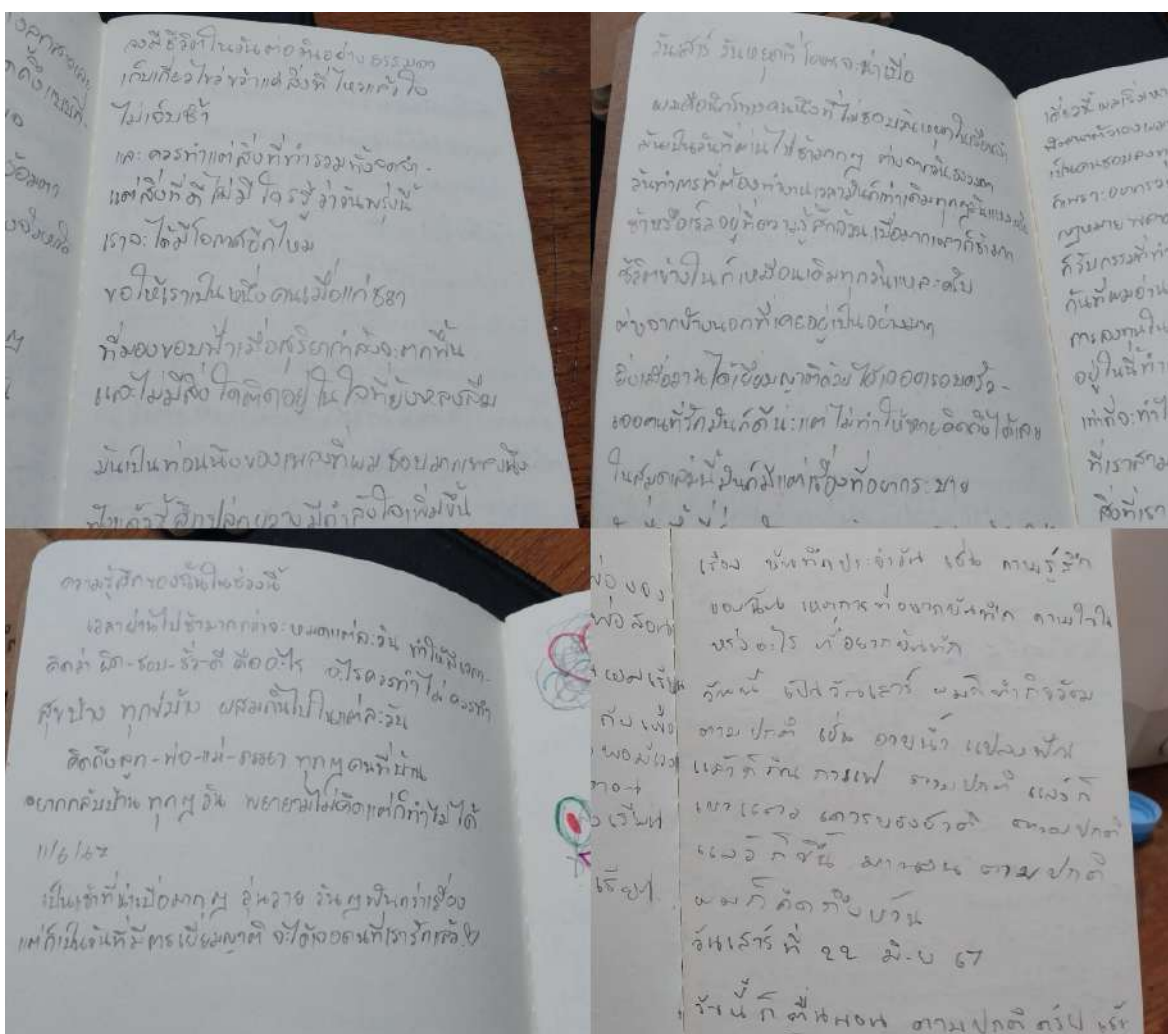 จงใช้ชีวิตในวันต่อวันอย่างธรรมดา
เก็บเกี่ยวไขว่คว้าแค่สิ่งที่ไหวแล้วใจ
ไม่เจ็บช้ำ
และควรทำแต่สิ่งที่
แต่สิ่งที่ดี ไม่มีใครรู้ว่าวันพรุ่งนี้
เราจะได้มีโอกาสอีกไหม
ขอให้เราเป็นหนึ่งคนเมื่อแก่ชรา
ที่มองขอบฟ้าเมื่อสุริยากำลังจะตกพื้น
และไม่มีสิ่งใดติดอยู่ในใจที่ยังหลงลืม
มันเป็นท่อนนึงของเพลงที่ผมชอบมากเพลงนึง
ฟังแล้วรู้สึก มีกำลังใจเพิ่มขึ้น
วันเสาร์ วันหยุดที่โคตรจะน่าเบื่อ
ผมคือนักโทษคนนึงที่ไม่ชอบวันหยุดในเรือนจำ
มันเป็นวันที่ผ่านไปช้ามากๆ ต่างจากวันธรรมดา
วันทำการที่ต้องทำงานเวลามันก็เท่าเดิมทุกๆวัน
ช้าหรือเร็วอยู่ที่ความรู้สึกล้วน เบื่อมากเวลาก็ช้ามาก
ชีวิตข้างในก็เหมือนเดิมทุกวันแหละครับ
ต่างจากข้างนอกที่เคยอยู่เป็นอย่างมาก
ยิ่งเมื่อวานได้เยี่ยมญาติด้วย ได้เจอครอบครัว-
เจอคนที่รักมันก็ดีน่ะแต่ไม่ทำให้หายคิดถึงได้เลย
ในสมุดเล่มนี้มันก็มีแต่เรื่องที่อยากระบาย
ความรู้สึกของฉันในช่วงนี้
เวลาผ่านไปช้ามากกว่าจะหมดแต่ละวัน ทำให้มีเวลา-
คิดว่า ผิด-ชอบ-ชั่ว-ดี คืออะไร อะไรควรทำไม่ควรทำ
สุขบ้าง ทุกข์บ้าง ผสมกันไปในแต่ละวัน
คิดถึงลูก-พ่อ-แม่-ภรรยา ทุกๆคนที่บ้าน
อยากกลับบ้านทุกๆวัน พยายามไม่คิดแต่ก็ทำไม่ได้
11/6/67
เป็นเช้าที่น่าเบื่อมากๆๆ วุ่นวาย
แต่ก็เป็นวันที่มีการเยี่ยมญาติ จะได้เจอคนที่เรารักแล้ว
เรื่อง บันทึกประจำวัน เช่น ความรู้สึก
ของฉัน เหตุการที่อยากบันทึก ความในใจ
หรืออะไร ที่อยากบันทึก
วันนี้ เป็นวันเสาร์ ผมก็ทำกิจวัตร
ตามปกติ เช่น อาบน้ำ แปลงฟัน
แล้วก็กินกาแฟ ตามปกติ แล้วก็
เข้าแถว เคารพธงชาติ ตามปกติ
แล้วก็ขึ้น ตามปกติ
ผมก็คิดถึงบ้าน
วันเสาร์ที่ 22 มิ.ย 67
วันนี้ก็ตื่นนอน ตามปกติครับ